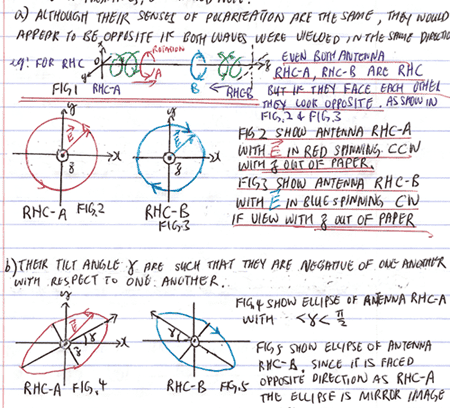 a) ALTHOUGH THEIR SENSES OF POLARIZATION ARE THE SAME, THEY WOULD
APPEAR TO BE OPPOSITE IF BOTH WAVES WERE VIEWED, IN THE SAME DIRECTIO
eg: FOR RHC
X
y
ROTATION
A
B
z
FIG.1
RHC-A
RHC-B
EVEN BOTH ANTENNA
RHC-A, RHC-B ARE RHC
BUT IF THEY FACE EACH OTHER
THEY LOOK OPPOSITE. AS SHOW IN
FIG.2 & FIG.3
y
E
x
z
RHC-A FIG.2
y
E
x
z
RHC-B
FIG.3
FIG.2 SHOW ANTENNA RHC-A
WITH E IN RED SPINNING CCW
WITH z OUT OF PAPER.
FIG.3 SHOW ANTENNA RHC-B
WITH E IN BLUE SPINNING CW
IF VIEW WITH z OUT OF PAPER
b) THEIR TILT ANGLE γ ARE SUCH THAT THEY ARE NEGATIVE OF ONE ANOTHER
WITH RESPECT TO ONE ANOTHER.
y
E
γ
x
z
RHC-A FIG.4
y
γ
x
RHC-B FIG.5
FIG.4 SHOW ELLIPSE OF ANTENNA RHC-A
WITH <γ< π/2
FIG.5 SHOW ELLIPSE OF ANTENNA
RHC-B. SINCE IT IS FACED
OPPOSITE DIRECTION AS RHC-A
THE ELLIPSE IS MIRROR IMAGE